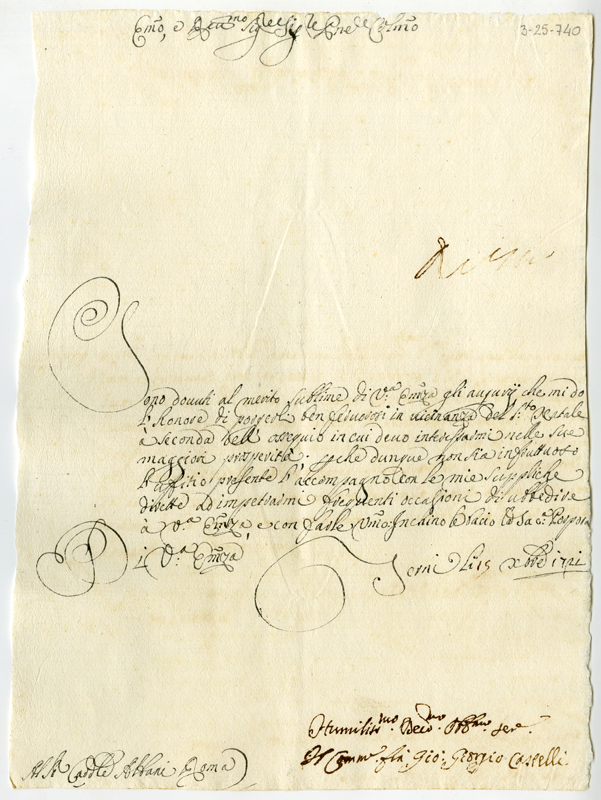 Em̃o, e Reu.mo Sig.re Sig.re Pne Colmo
3-25-740
Sono douuti al merito sublime di V.ra Emza gli augurij che mi do
l'honore di porgerli ben feruorosi in uicinanza del S.to Natale
a seconda dell'ossequio in cui deuo interessarmi nelle sue
maggiori prosperità. Perche dunque non sia infruttuoso
l'uffitio presente l'accompagno con le mie suppliche
dirette ad impetrarmi frequenti occasioni di ubbedire
à V.ra Emza, e con farle Vmo Inchino bacio la Sac.a Porpora
Di V.ra Emza
Terni li 15 Xbre 1721
Humiliss.mo Deuo.mo Obb.mo Ser.e
Il Comm.re fra Gio: Giorgio Castelli
Al Sr. Cardle Albani Roma